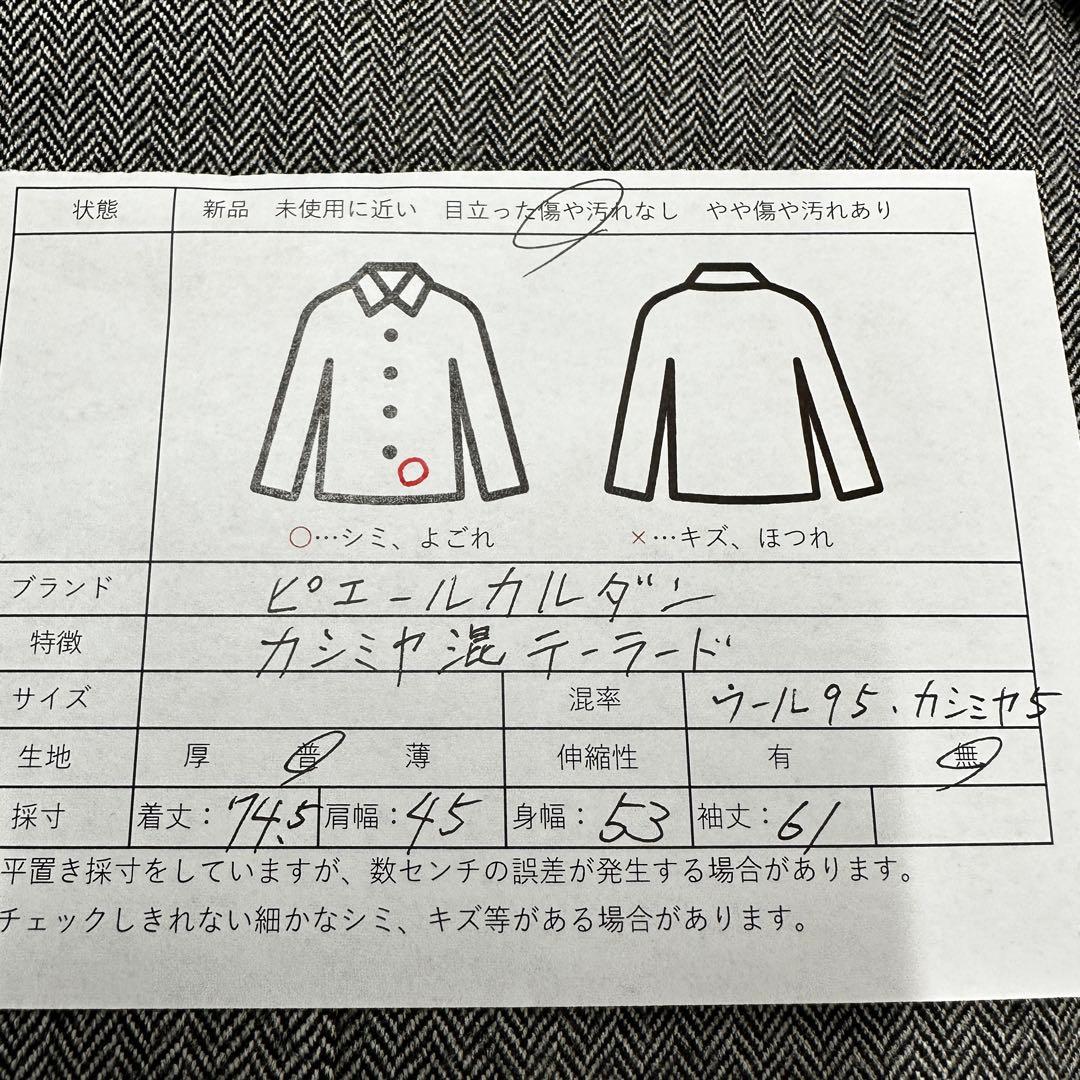 状態 新品 未使用に近い 目立った傷や汚れなし やや傷や汚れあり
○…シミ、よごれ ×…キズ、ほつれ
ブランド ピエールカルダン
特徴 カシミヤ混 テーラード
サイズ 混率 ウール95、カシミヤ5
生地 厚 普 薄 伸縮性 有 無
採寸 着丈：74.5 肩幅：45 身幅：53 袖丈：61
平置き採寸をしていますが、数センチの誤差が発生する場合があります。
チェックしきれない細かなシミ、キズ等がある場合があります。